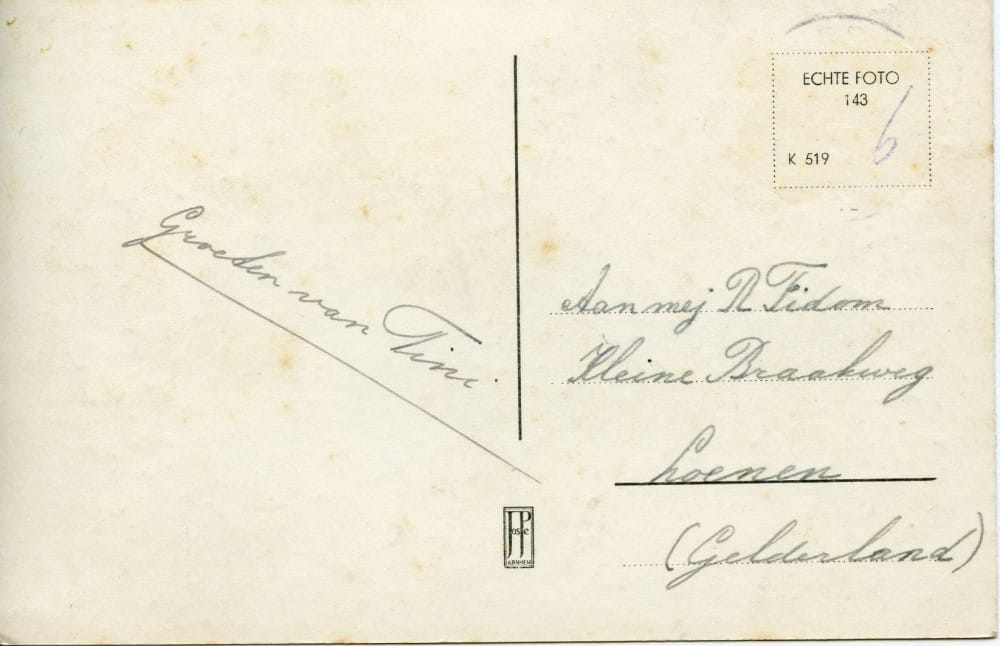 ECHTE FOTO
143
K 519
6
Groeten van Tini
Aan mej R Tidom
Kleine Braakweg
Loenen
(Gelderland)
JosPé
ARNHEM